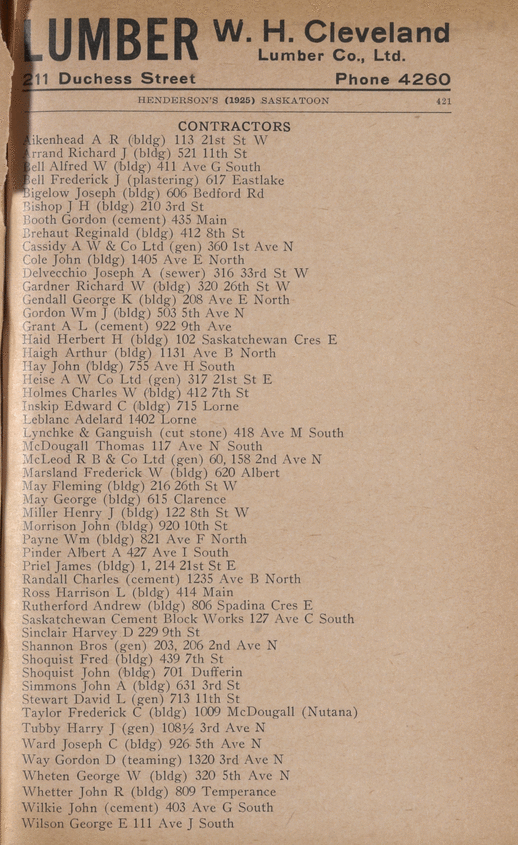 LUMBER W. H. Cleveland
Lumber Co., Ltd.
211 Duchess Street Phone 4260
HENDERSON'S (1925) SASKATOON 421
CONTRACTORS
Aikenhead A R (bldg) 113 21st St W
Arrand Richard J (bldg) 521 11th St
Bell Alfred W (bldg) 411 Ave G South
Bell Frederick J (plastering) 617 Eastlake
Bigelow Joseph (bldg) 606 Bedford Rd
Bishop J H (bldg) 210 3rd St
Booth Gordon (cement) 435 Main
Brehaut Reginald (bldg) 412 8th St
Cassidy A W & Co Ltd (gen) 360 1st Ave N
Cole John (bldg) 1405 Ave E North
Delvecchio Joseph A (sewer) 316 33rd St W
Gardner Richard W (bldg) 320 26th St W
Gendall George K (bldg) 208 Ave E North
Gordon Wm J (bldg) 503 5th Ave N
Grant A L (cement) 922 9th Ave
Haid Herbert H (bldg) 102 Saskatchewan Cres E
Haigh Arthur (bldg) 1131 Ave B North
Hay John (bldg) 755 Ave H South
Heise A W Co Ltd (gen) 317 21st St E
Holmes Charles W (bldg) 412 7th St
Inskip Edward C (bldg) 715 Lorne
Leblanc Adelard 1402 Lorne
Lynchke & Ganguish (cut stone) 418 Ave M South
McDougall Thomas 117 Ave N South
McLeod R B & Co Ltd (gen) 60, 158 2nd Ave N
Marsland Frederick W (bldg) 620 Albert
May Fleming (bldg) 216 26th St W
May George (bldg) 615 Clarence
Miller Henry J (bldg) 122 8th St W
Morrison John (bldg) 920 10th St
Payne Wm (bldg) 821 Ave F North
Pinder Albert A 427 Ave I South
Priel James (bldg) 1, 214 21st St E
Randall Charles (cement) 1235 Ave B North
Ross Harrison L (bldg) 414 Main
Rutherford Andrew (bldg) 806 Spadina Cres E
Saskatchewan Cement Block Works 127 Ave C South
Sinclair Harvey D 229 9th St
Shannon Bros (gen) 203, 206 2nd Ave N
Shoquist Fred (bldg) 439 7th St
Shoquist John (bldg) 701 Dufferin
Simmons John A (bldg) 631 3rd St
Stewart David L (gen) 713 11th St
Taylor Frederick C (bldg) 1009 McDougall (Nutana)
Tubby Harry J (gen) 108½ 3rd Ave N
Ward Joseph C (bldg) 926 5th Ave N
Way Gordon D (teaming) 1320 3rd Ave N
Wheten George W (bldg) 320 5th Ave N
Whetter John R (bldg) 809 Temperance
Wilkie John (cement) 403 Ave G South
Wilson George E 111 Ave J South